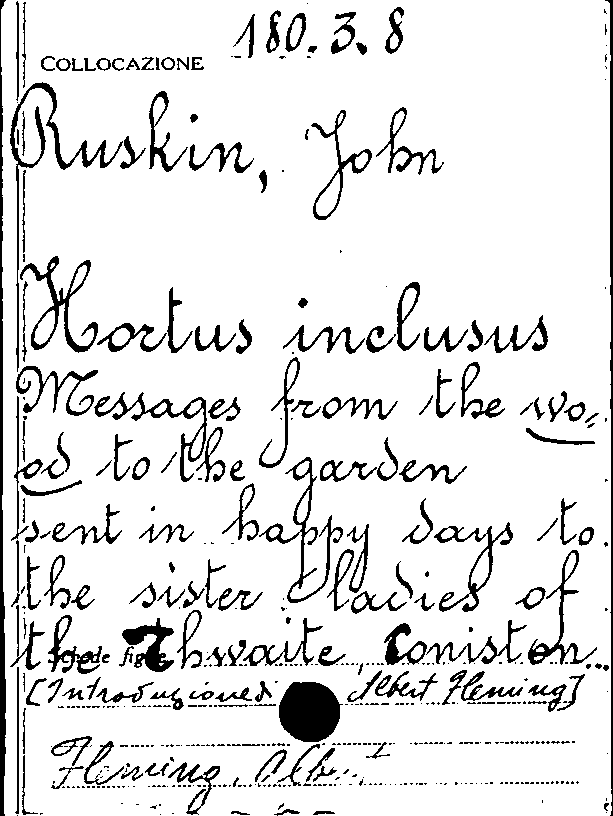 180.3.8
COLLOCAZIONE
Ruskin, John
Hortus inclusus
Messages from the wo=
od to the garden
sent in happy days to
the sister ladies of
the Thwaite, Coniston...
Schede figlie
[Introduzione di Albert Fleming]
Fleming, Albert